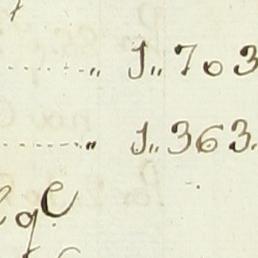 .......„ 1„703
.......„ 1„363.